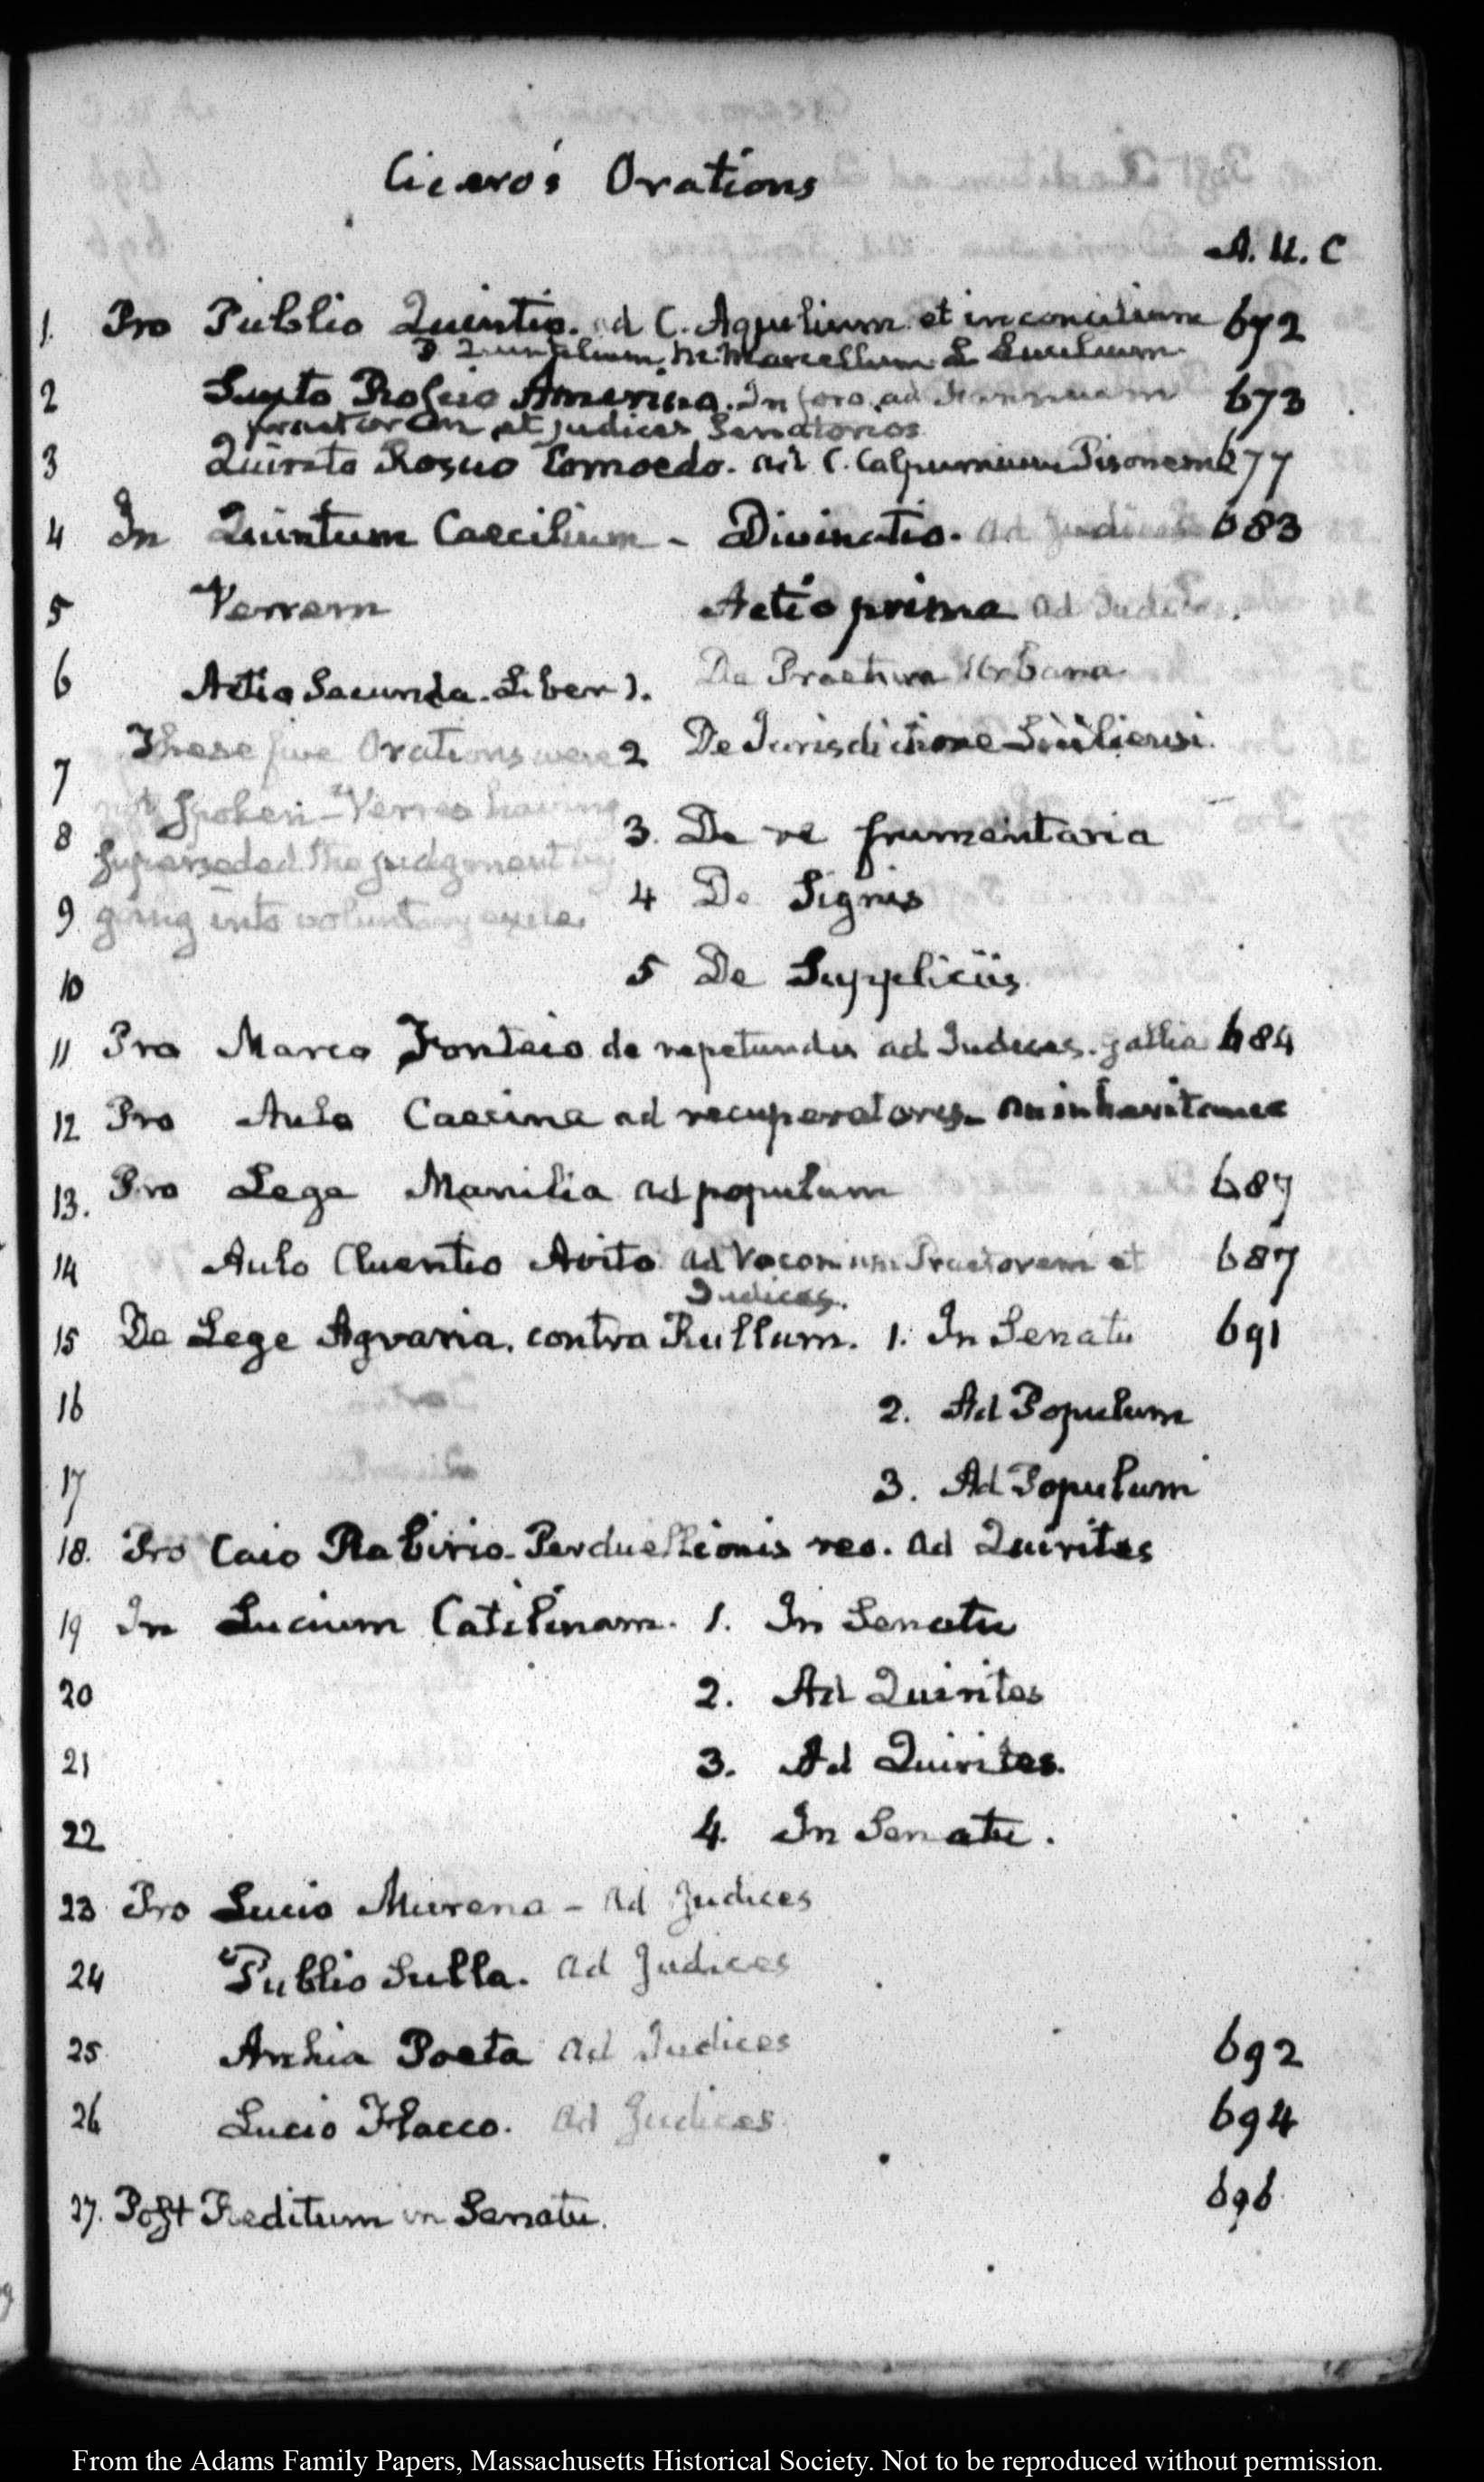 Cicero's Orations
A. U. C
1. Pro Publio Quintio. ad C. Aquilium et in concilium 672
P Quintilium, M. Marcellum L Lucilium
2 Sexto Roscio Amerino. In foro, ad Fannium 673
praetorem et judices Senatorios
3 Quinto Roscio Comoedo. ad C. Calpurnium Pisonem 677
4 In Quintum Caecilium - Divinatio. ad Judices 683
5 Verrem Actio prima ad Judices.
6 Actio Secunda. Liber 1. De Praetura Urbana
7 These five Orations were 2 De Jurisdictione Siciliensi.
not Spoken - Verres having
8 3. De re frumentaria
Superseded the judgment by
9 going into voluntary exile. 4 De Signis
10 5 De Suppliciis
11 Pro Marco Fonteio de repetundis ad Judices. Gallia 684
12 Pro Aulo Caecina ad recuperatores - an inheritance
13. Pro Lege Manilia ad populum 687
14 Aulo Cluentio Avito ad Voconium Praetorem et 687
Judices.
15 De Lege Agraria. contra Rullum. 1. In Senatu 691
16 2. Ad Populum
17 3. Ad Populum
18. Pro Caio Rabirio - Perduellionis reo. ad Quirites
19 In Lucium Catilinam. 1. In Senatu
20 2. Ad Quirites
21 3. Ad Quirites.
22 4. In Senatu.
23 Pro Lucio Murena - ad Judices
24 Publio Sulla. ad Judices
25 Archia Poeta ad Judices 692
26 Lucio Flacco. ad Judices 694
27. Post Reditum in Senatu. 696
From the Adams Family Papers, Massachusetts Historical Society. Not to be reproduced without permission.